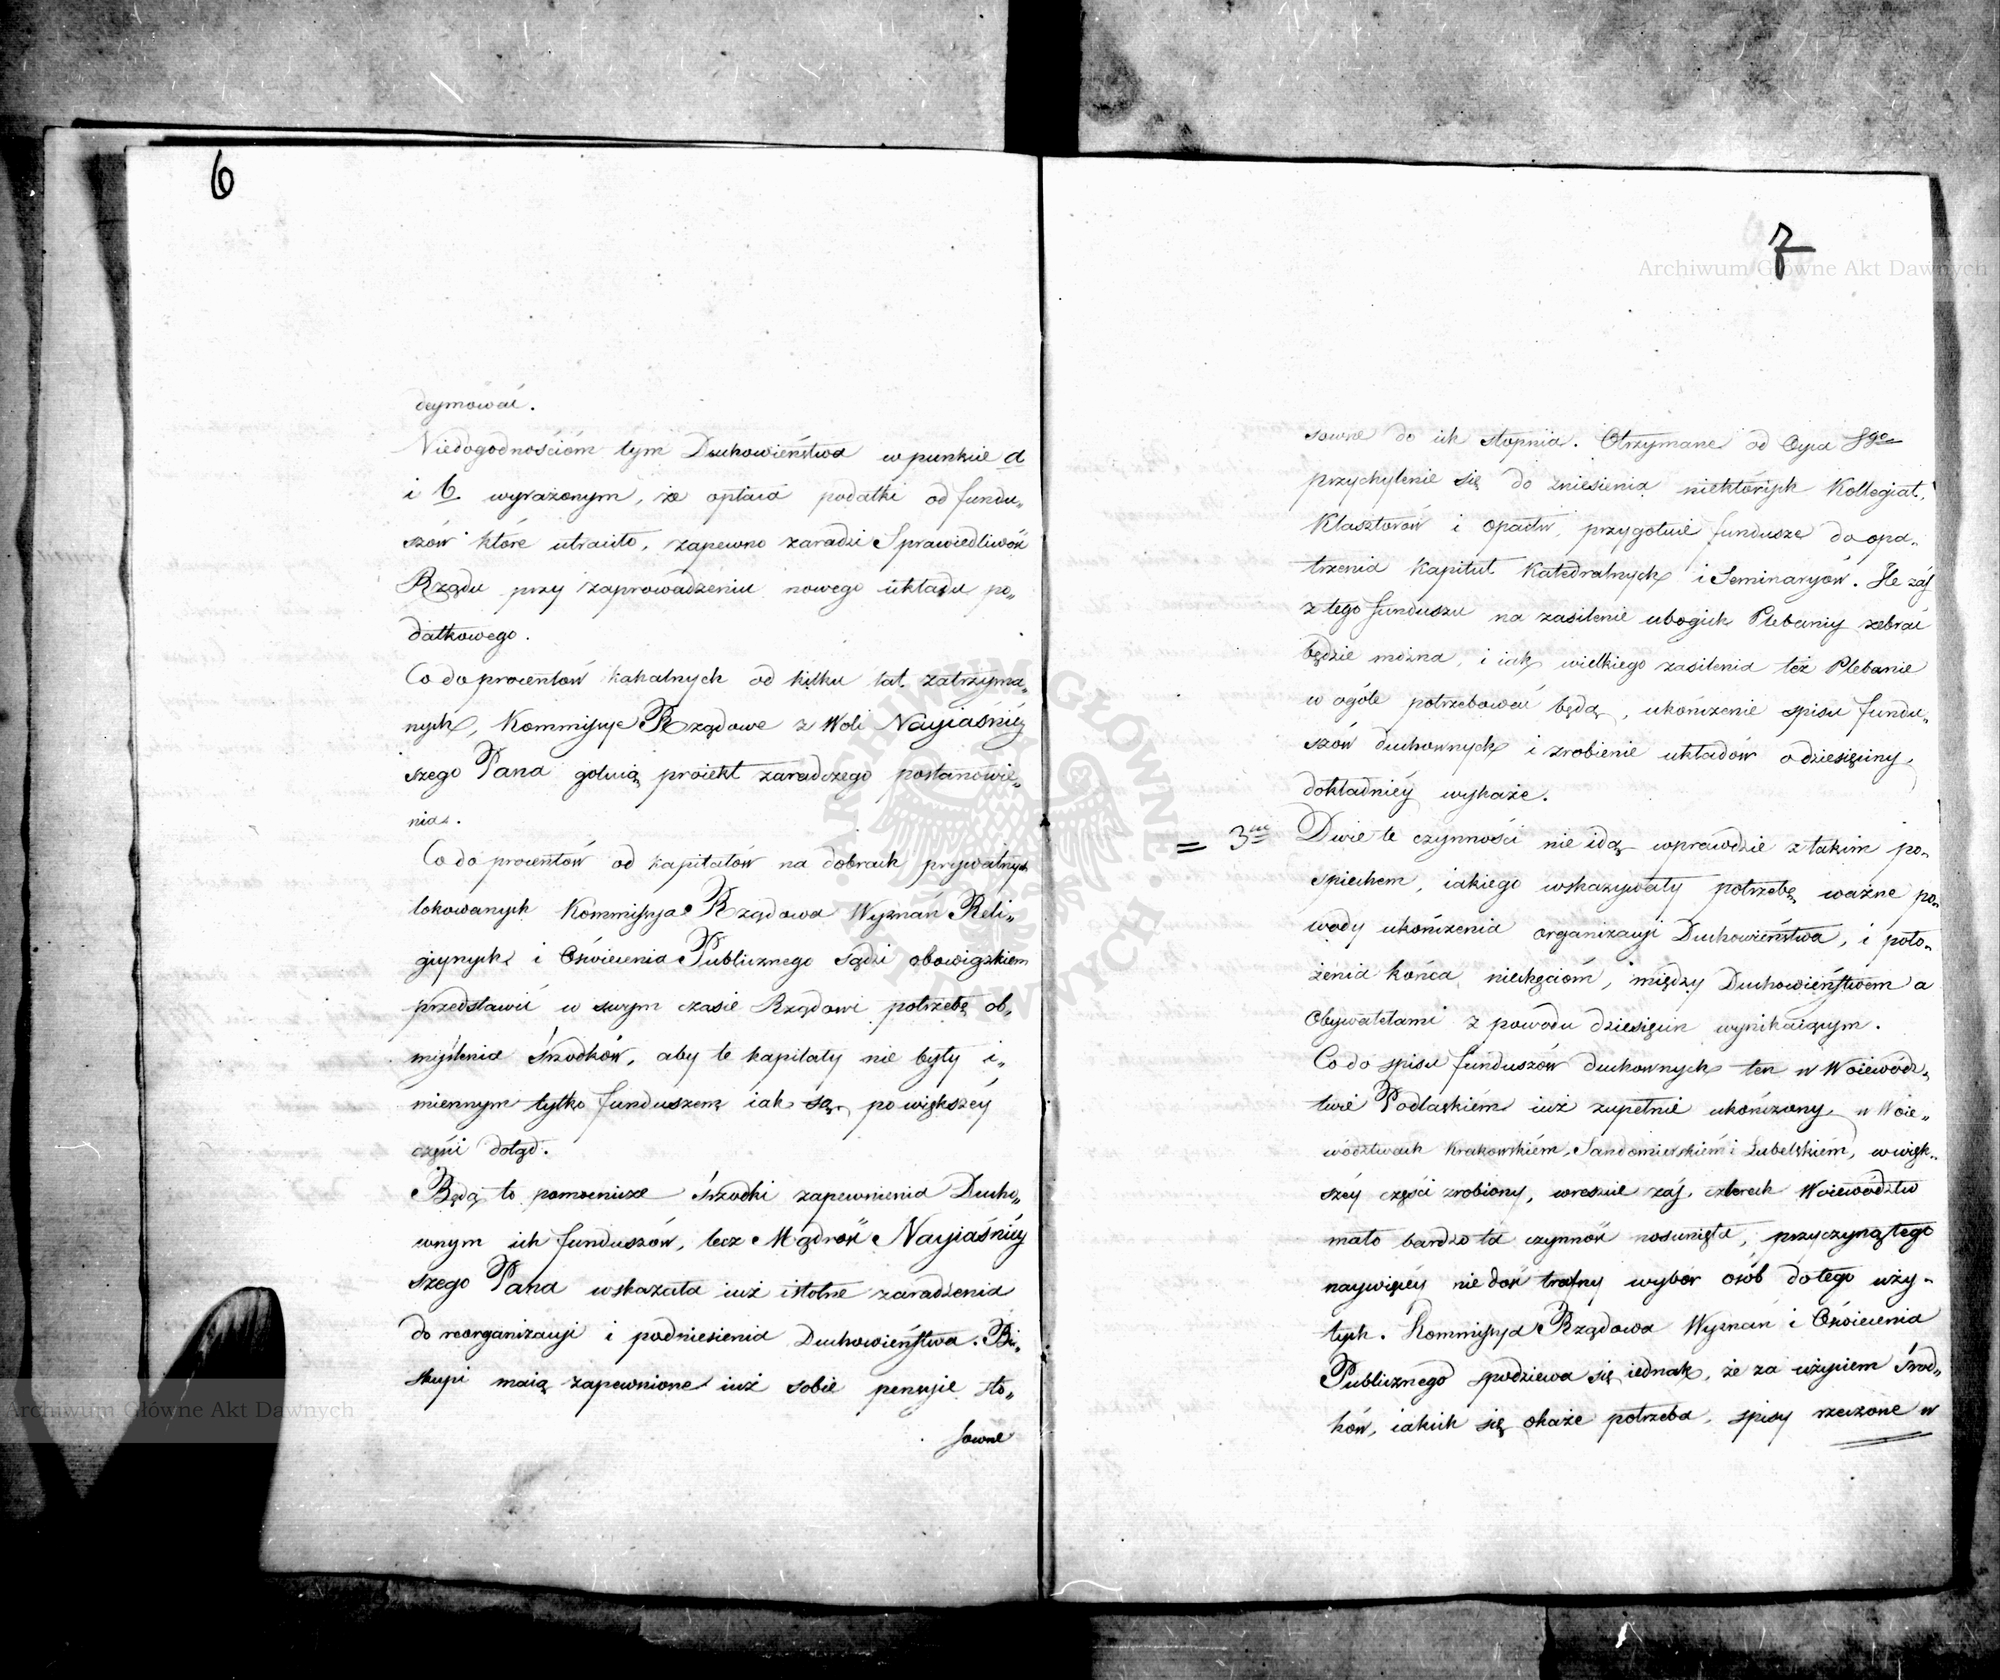 6
deymować.
Niedogodnościóm tym Duchowieństwa w punkcie a
i b wyrażonym, że opłaca podatki od fundu„
szów które utraciło, zapewno zaradzi Sprawiedliwość
Rządu przy zaprowadzeniu nowego układu po„
datkowego.
Co do procentów kahalnych od kilku lat zatrzyma„
nych, Kommissye Rządowe z Woli Nayiaśniéy
szego Pana gotuią proiekt zaradczego postanowie„
nia.
Co do procentów od kapitałów na dobrach prywatnych
lokowanych Kommissya Rządowa Wyznań Reli„
giynych i Oświecenia Publicznego sądzi obowiązkiem
przedstawić w swym czasie Rządowi potrzebę ob„
myślenia śrzodków, aby te kapitały nie były i„
miennym tylko funduszem iak są po większéy
części dotąd.
Będą to pomocnicze śrzodki zapewnienia Ducho„
wnym ich funduszów, lecz Mądrość Nayiaśniéy
szego Pana wskazała iuż istotne zaradzenia
do reorganizacyi i podniesienia Duchowieństwa. Bi„
skupi maią zapewnione iuż sobie pensyie sto„
sowne
7
Archiwum Główne Akt Dawnych
sowne do ich stopnia. Otrzymane od Oyca Sgo
przychylenie się do zniesienia niektórych Kollegiat,
Klasztorów i Opactw, przygotuie fundusze do opa„
trzenia Kapituł Katedralnych i Seminaryów. Ile zaś
z tego funduszu na zasilenie ubogich Plebaniy zebrać
będzie można, i iak wielkiego zasilenia też Plebanie
w ogóle potrzebować będą, ukończenie spisu fundu„
szów duchownych i zrobienie układów o dziesięciny,
dokładniéy wykaże.
= 3cie Dwie te czynności nie idą wprawdzie z takim po„
spiechem, iakiego wskazywały potrzebę ważne po„
wody ukończenia organizacyi Duchowieństwa, i poło„
żenia końca niechęcióm, między Duchowieństwem a
Obywatelami z powodu dziesięcin wynikaiącym.
Co do spisu funduszów duchownych ten w Woiewódz„
twie Podlaskiém iuż zupełnie ukończony, w Woie„
wództwach Krakowskiém, Sandomierskiém i Lubelskiém, w więk„
széy części zrobiony, wreszcie zaś czterech Woiewództw
mało bardzo ta czynność posunięta, przyczyną tego
naywięcéy nie dość trafny wybór osób do tego uży„
tych. Kommissya Rządowa Wyznań i Oświecenia
Publicznego spodziewa się iednak, że za użyciem śrzod„
ków, iakich się okaże potrzeba, spisy rzeczone w
Archiwum Główne Akt Dawnych
ARCHIWUM GŁÓWNE AKT DAWNYCH